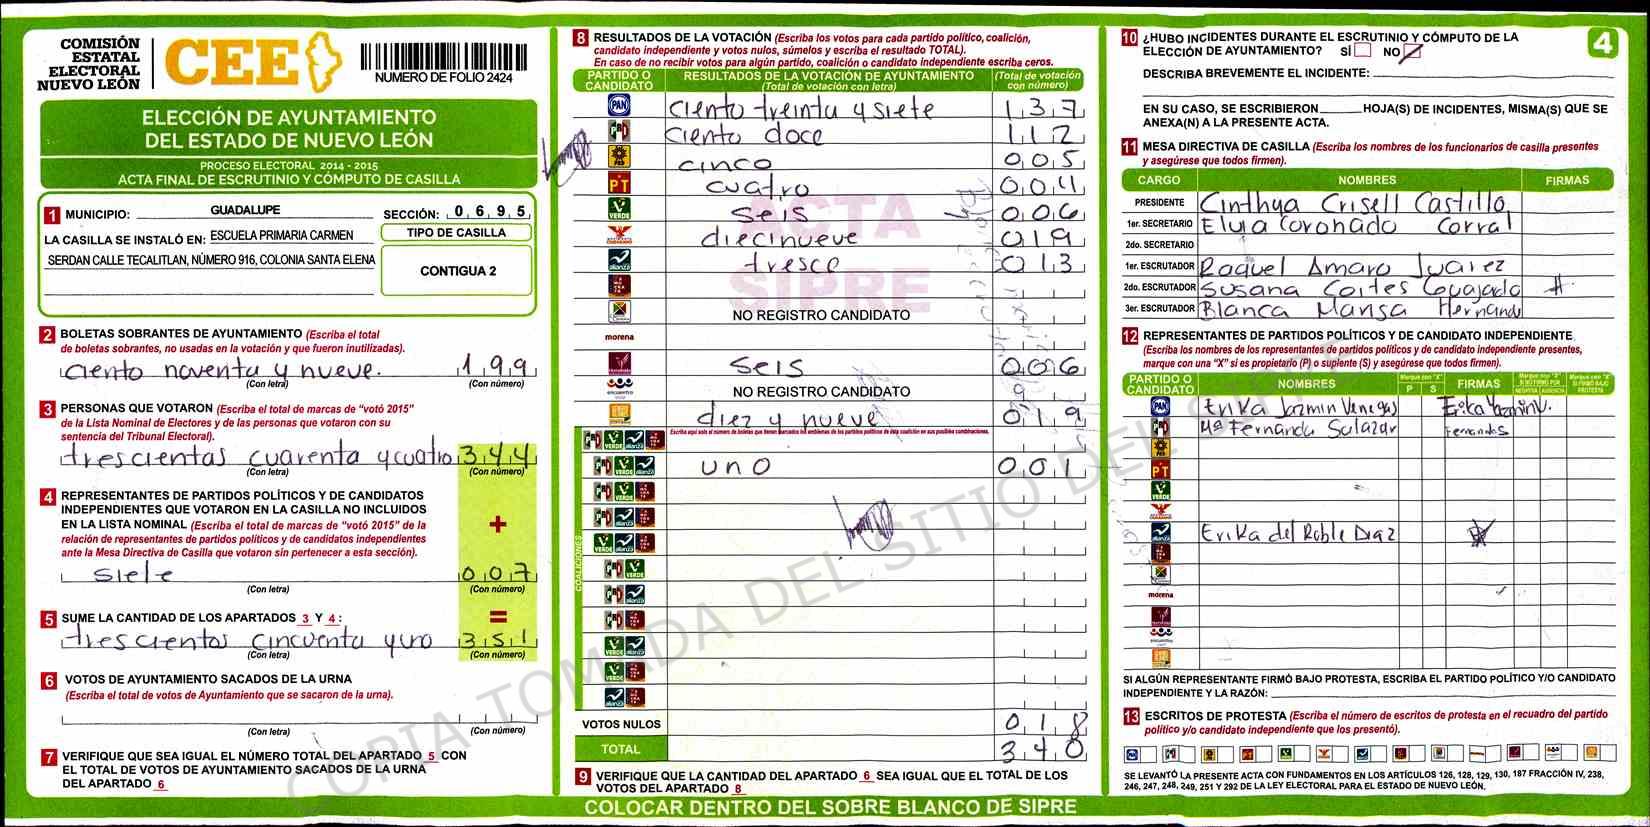 COMISIÓN
ESTATAL
ELECTORAL
NUEVO LEÓN
CEE
NUMERO DE FOLIO 2424
ELECCIÓN DE AYUNTAMIENTO
DEL ESTADO DE NUEVO LEÓN
PROCESO ELECTORAL 2014 - 2015
ACTA FINAL DE ESCRUTINIO Y CÓMPUTO DE CASILLA
1 MUNICIPIO: GUADALUPE SECCIÓN: 0 6 9 5
LA CASILLA SE INSTALÓ EN: ESCUELA PRIMARIA CARMEN
SERDAN CALLE TECALITLAN, NÚMERO 916, COLONIA SANTA ELENA
TIPO DE CASILLA
CONTIGUA 2
2 BOLETAS SOBRANTES DE AYUNTAMIENTO (Escriba el total
de boletas sobrantes, no usadas en la votación y que fueron inutilizadas).
ciento noventa y nueve. 1 9 9
(Con letra) (Con número)
3 PERSONAS QUE VOTARON (Escriba el total de marcas de “votó 2015”
de la Lista Nominal de Electores y de las personas que votaron con su
sentencia del Tribunal Electoral).
trescientas cuarenta y cuatro 3 4 4
(Con letra) (Con número)
4 REPRESENTANTES DE PARTIDOS POLÍTICOS Y DE CANDIDATOS
INDEPENDIENTES QUE VOTARON EN LA CASILLA NO INCLUIDOS
EN LA LISTA NOMINAL (Escriba el total de marcas de “votó 2015” de la
relación de representantes de partidos políticos y de candidatos independientes
ante la Mesa Directiva de Casilla que votaron sin pertenecer a esta sección).
+
siete 0 0 7
(Con letra) (Con número)
5 SUME LA CANTIDAD DE LOS APARTADOS 3 Y 4 : =
trescientos cincuenta y uno 3 5 1
(Con letra) (Con número)
6 VOTOS DE AYUNTAMIENTO SACADOS DE LA URNA
(Escriba el total de votos de Ayuntamiento que se sacaron de la urna).
(Con letra) (Con número)
7 VERIFIQUE QUE SEA IGUAL EL NÚMERO TOTAL DEL APARTADO 5 CON
EL TOTAL DE VOTOS DE AYUNTAMIENTO SACADOS DE LA URNA
DEL APARTADO 6
8 RESULTADOS DE LA VOTACIÓN (Escriba los votos para cada partido político, coalición,
candidato independiente y votos nulos, súmelos y escriba el resultado TOTAL).
En caso de no recibir votos para algún partido, coalición o candidato independiente escriba ceros.
PARTIDO O CANDIDATO RESULTADOS DE LA VOTACIÓN DE AYUNTAMIENTO (Total de votación con letra) (Total de votación con número)
PAN ciento treinta y siete 1 3 7
PRD ciento doce 1 1 2
cinco 0 0 5
PT cuatro 0 0 4
VERDE seis 0 0 6
diecinueve 0 1 9
alianza trece 0 1 3
NO REGISTRO CANDIDATO
morena
seis 0 0 6
encuentro NO REGISTRO CANDIDATO
diez y nueve 0 1 9
Escriba aquí solo el número de boletas que tienen marcados los emblemas de los partidos políticos de esta coalición en sus posibles combinaciones.
COALICIONES
uno 0 0 1
VOTOS NULOS 0 1 8
TOTAL 3 4 0
9 VERIFIQUE QUE LA CANTIDAD DEL APARTADO 6 SEA IGUAL QUE EL TOTAL DE LOS
VOTOS DEL APARTADO 8
COLOCAR DENTRO DEL SOBRE BLANCO DE SIPRE
ACTA
SIPRE
COPIA TOMADA DEL SITIO DEL SIPRE
10 ¿HUBO INCIDENTES DURANTE EL ESCRUTINIO Y CÓMPUTO DE LA
ELECCIÓN DE AYUNTAMIENTO? SÍ NO
4
DESCRIBA BREVEMENTE EL INCIDENTE:
EN SU CASO, SE ESCRIBIERON HOJA(S) DE INCIDENTES, MISMA(S) QUE SE
ANEXA(N) A LA PRESENTE ACTA.
11 MESA DIRECTIVA DE CASILLA (Escriba los nombres de los funcionarios de casilla presentes
y asegúrese que todos firmen).
CARGO NOMBRES FIRMAS
PRESIDENTE Cinthya Crisell Castillo
1er. SECRETARIO Elvia Coronado Corral
2do. SECRETARIO
1er. ESCRUTADOR Raquel Amaro Juarez
2do. ESCRUTADOR Susana Cortes Guajado
3er. ESCRUTADOR Blanca Hernand
12 REPRESENTANTES DE PARTIDOS POLÍTICOS Y DE CANDIDATO INDEPENDIENTE
(Escriba los nombres de los representantes de partidos políticos y de candidato independiente presentes,
marque con una “X” si es propietario (P) o suplente (S) y asegúrese que todos firmen).
PARTIDO O CANDIDATO NOMBRES P S FIRMAS
PAN Erika Jazmin Venegas Erika Yazmin V.
Mª Fernanda Salazar Fernandas
PT
VERDE
alianza Erika del Roble Diaz
morena
encuentro
SI ALGÚN REPRESENTANTE FIRMÓ BAJO PROTESTA, ESCRIBA EL PARTIDO POLÍTICO Y/O CANDIDATO
INDEPENDIENTE Y LA RAZÓN:
13 ESCRITOS DE PROTESTA (Escriba el número de escritos de protesta en el recuadro del partido
político y/o candidato independiente que los presentó).
SE LEVANTÓ LA PRESENTE ACTA CON FUNDAMENTOS EN LOS ARTÍCULOS 126, 128, 129, 130, 187 FRACCIÓN IV, 238,
246, 247, 248, 249, 251 Y 292 DE LA LEY ELECTORAL PARA EL ESTADO DE NUEVO LEÓN.